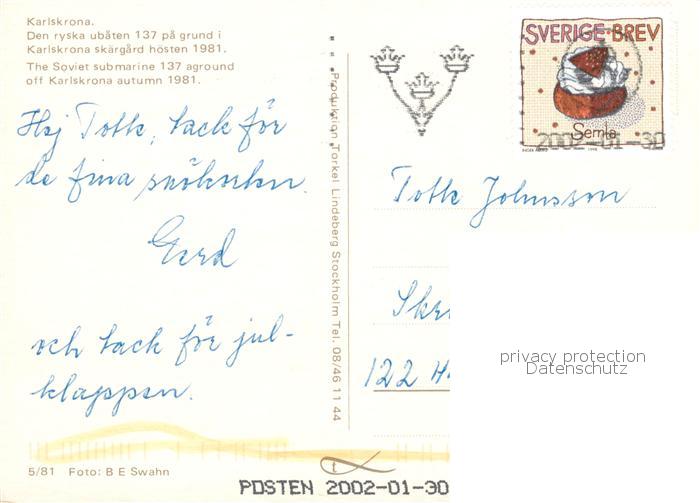 Karlskrona.
Den ryska ubåten 137 på grund i
Karlskrona skärgård hösten 1981.
The Soviet submarine 137 aground
off Karlskrona autumn 1981.
Hej Totte, tack för
de fina snökorten.
Gerd
och tack för jul-
klappen.
5/81 Foto: B E Swahn
Produktion Torkel Lindeberg Stockholm Tel. 08/46 11 44
SVERIGE BREV
Semla
2002-01-30
Totte Johnsson
122
privacy protection
Datenschutz
POSTEN 2002-01-30